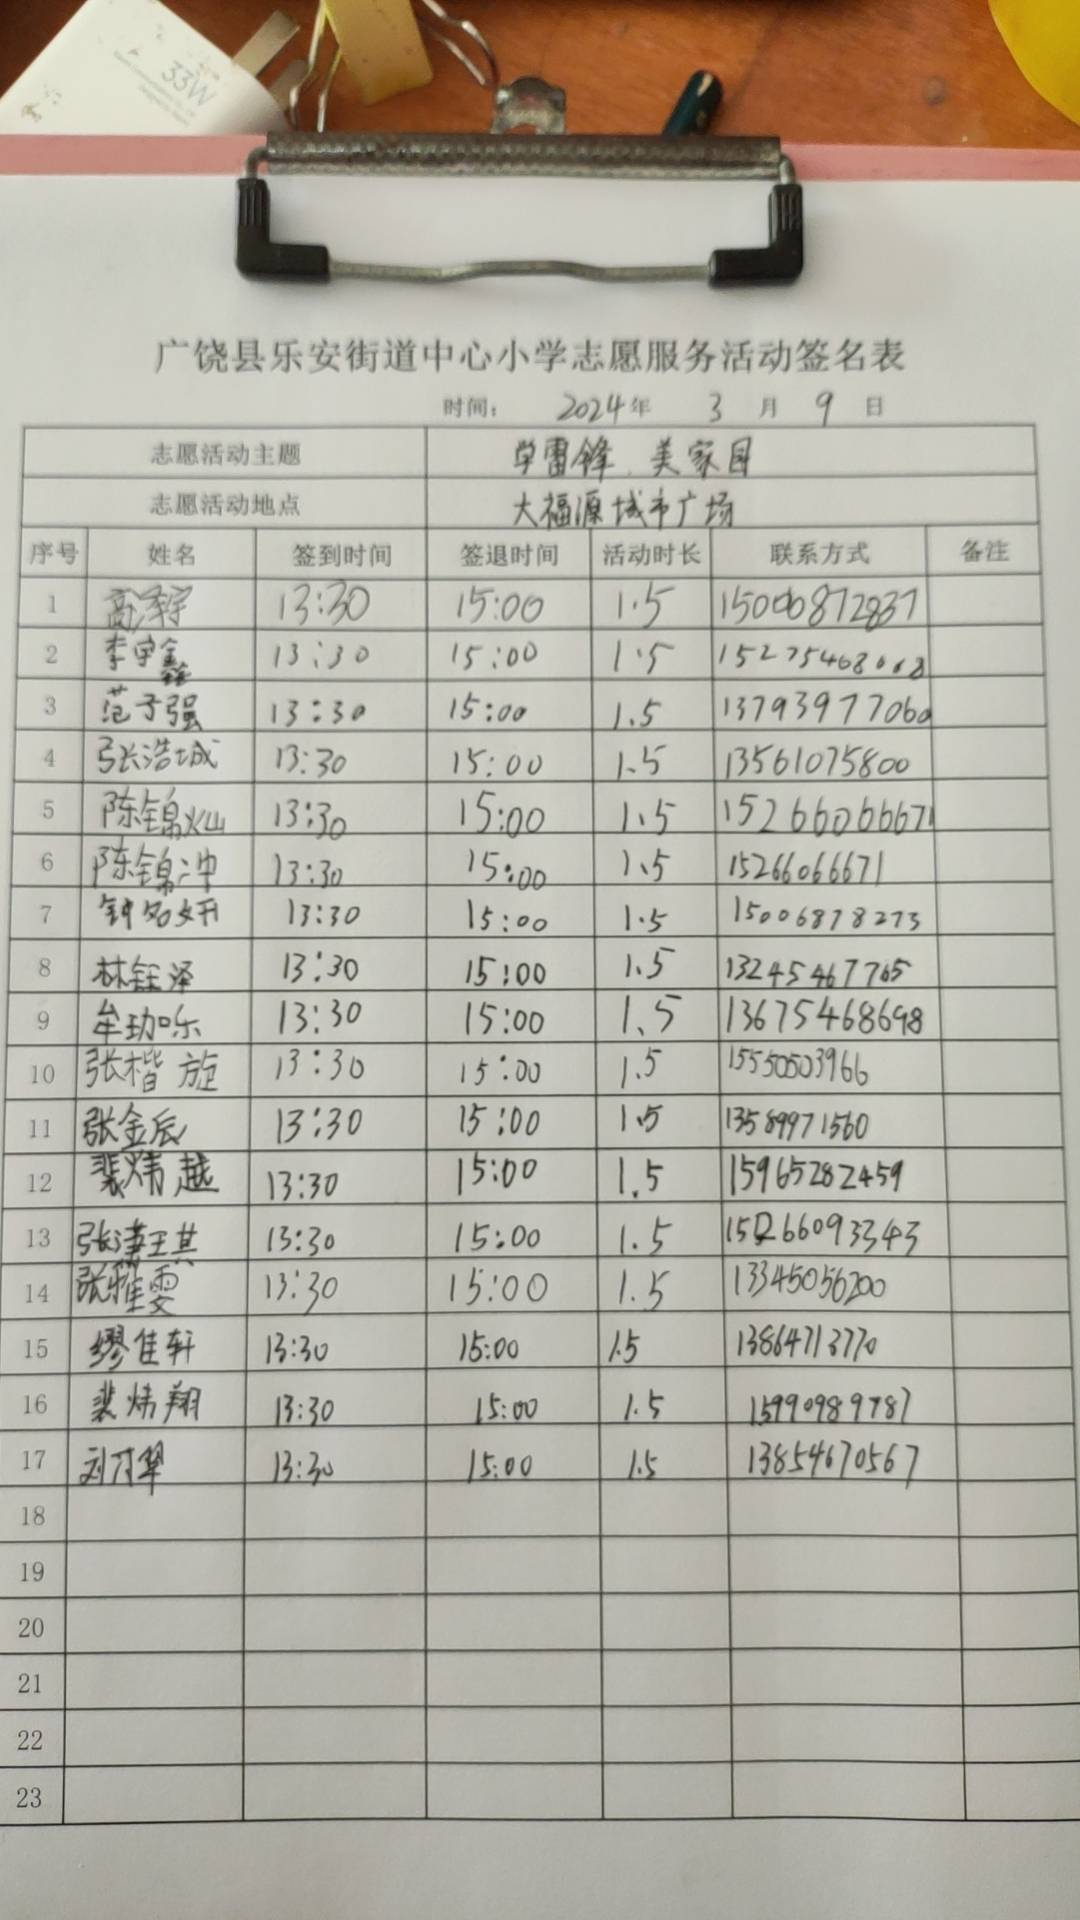 33W
广饶县乐安街道中心小学志愿服务活动签名表
时间： 2024年 3 月 9 日
志愿活动主题 学雷锋、美家园
志愿活动地点 大福源城市广场
序号 姓名 签到时间 签退时间 活动时长 联系方式 备注
1 高泽宇 13:30 15:00 1.5 15006872837
2 李宇鑫 13:30 15:00 1.5 15275468068
3 范子强 13:30 15:00 1.5 13793977060
4 张浩城 13:30 15:00 1.5 13561075800
5 陈锦灿 13:30 15:00 1.5 15266066671
6 陈锦冲 13:30 15:00 1.5 15266066671
7 钟名妍 13:30 15:00 1.5 15006878273
8 林钰泽 13:30 15:00 1.5 13245467765
9 牟玏乐 13:30 15:00 1.5 13675468698
10 张楷旋 13:30 15:00 1.5 15550503966
11 张金辰 13:30 15:00 1.5 13589971560
12 裴炜越 13:30 15:00 1.5 15965282459
13 张潇琪 13:30 15:00 1.5 15266093343
14 张雅雯 13:30 15:00 1.5 13345056200
15 缪佳轩 13:30 15:00 1.5 13864713770
16 裴炜翔 13:30 15:00 1.5 15990989787
17 13:30 15:00 1.5 13854670567
18
19
20
21
22
23